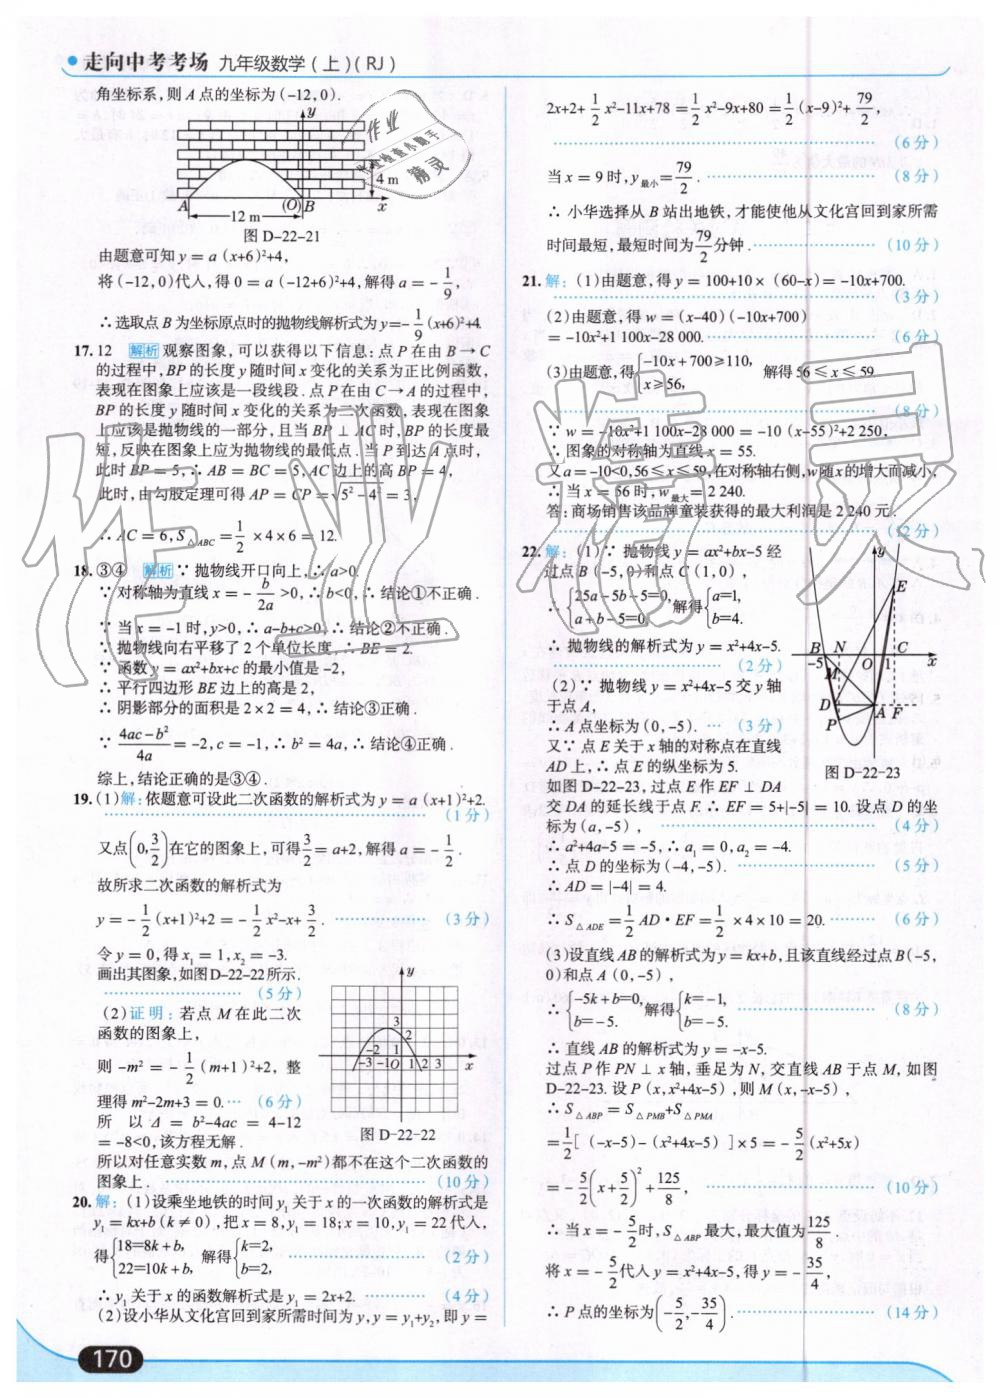 走向中考考场 九年级数学(上)(RJ)
角坐标系,则A点的坐标为(-12,0).
y
4 m
A (O) B x
12 m
图D-22-21
由题意可知y=a(x+6)²+4,
将(-12,0)代入,得0=a(-12+6)²+4,解得a=-1/9,
∴选取点B为坐标原点时的抛物线解析式为y=-1/9(x+6)²+4.
17.12 解析 观察图象,可以获得以下信息:点P在由B→C
的过程中,BP的长度y随时间x变化的关系为正比例函数,
表现在图象上应该是一段线段.点P在由C→A的过程中,
BP的长度y随时间x变化的关系为二次函数,表现在图象
上应该是抛物线的一部分,且当BP⊥AC时,BP的长度最
短,反映在图象上应为抛物线的最低点.当P到达A点时,
此时BP=5,∴AB=BC=5,AC边上的高BP=4,
此时,由勾股定理可得AP=CP=√5²-4²=3,
∴AC=6,S△ABC=1/2×4×6=12.
18.③④ 解析 ∵抛物线开口向上,∴a>0.
∵对称轴为直线x=-b/2a>0,∴b<0,∴结论①不正确.
∵当x=-1时,y>0,∴a-b+c>0,∴结论②不正确.
∵抛物线向右平移了2个单位长度,∴BE=2.
∵函数y=ax²+bx+c的最小值是-2,
∴平行四边形BE边上的高是2,
∴阴影部分的面积是2×2=4,∴结论③正确.
∵(4ac-b²)/4a=-2,c=-1,∴b²=4a,∴结论④正确.
综上,结论正确的是③④.
19.(1)解:依题意可设此二次函数的解析式为y=a(x+1)²+2.
(1分)
又点(0,3/2)在它的图象上,可得3/2=a+2,解得a=-1/2.
故所求二次函数的解析式为
y=-1/2(x+1)²+2=-1/2x²-x+3/2. (3分)
令y=0,得x₁=1,x₂=-3.
画出其图象,如图D-22-22所示.
(5分)
(2)证明:若点M在此二次
函数的图象上,
则-m²=-1/2(m+1)²+2,整
理得m²-2m+3=0. (6分)
所以Δ=b²-4ac=4-12
=-8<0,该方程无解.
y
3
2
-2 1
-3 -1O 1 2 3 x
图D-22-22
所以对任意实数m,点M(m,-m²)都不在这个二次函数的
图象上. (10分)
20.解:(1)设乘坐地铁的时间y₁关于x的一次函数的解析式是
y₁=kx+b(k≠0),把x=8,y₁=18;x=10,y₁=22代入,
得{18=8k+b, 22=10k+b, 解得{k=2, b=2, (2分)
∴y₁关于x的函数解析式是y₁=2x+2. (4分)
(2)设小华从文化宫回到家所需时间为y,y=y₁+y₂,即y=
170
2x+2+1/2x²-11x+78=1/2x²-9x+80=1/2(x-9)²+79/2,
(6分)
当x=9时,y最小=79/2. (8分)
∴小华选择从B站出地铁,才能使他从文化宫回到家所需
时间最短,最短时间为79/2分钟. (10分)
21.解:(1)由题意,得y=100+10×(60-x)=-10x+700.
(3分)
(2)由题意,得w=(x-40)(-10x+700)
=-10x²+1 100x-28 000. (6分)
(3)由题意,得{-10x+700≥110, x≥56, 解得56≤x≤59.
(8分)
∵w=-10x²+1 100x-28 000=-10(x-55)²+2 250,
∴图象的对称轴为直线x=55.
又a=-10<0,56≤x≤59,在对称轴右侧,w随x的增大而减小,
∴当x=56时,w最大=2 240.
答:商场销售该品牌童装获得的最大利润是2 240元.
(12分)
22.解:(1)∵抛物线y=ax²+bx-5经
过点B(-5,0)和点C(1,0),
∴{25a-5b-5=0, a+b-5=0, 解得{a=1, b=4.
∴抛物线的解析式为y=x²+4x-5.
(2分)
(2)∵抛物线y=x²+4x-5交y轴
于点A,
∴A点坐标为(0,-5). (3分)
又∵点E关于x轴的对称点在直线
AD上,∴点E的纵坐标为5.
如图D-22-23,过点E作EF⊥DA
y
E
B N C
-5 O 1 x
M
D A F
P
图D-22-23
交DA的延长线于点F.∴EF=5+|-5|=10.设点D的坐
标为(a,-5), (4分)
∴a²+4a-5=-5,∴a₁=0,a₂=-4.
∴点D的坐标为(-4,-5). (5分)
∴AD=|-4|=4.
∴S△ADE=1/2AD·EF=1/2×4×10=20. (6分)
(3)设直线AB的解析式为y=kx+b,且该直线经过点B(-5,
0)和点A(0,-5),
∴{-5k+b=0, b=-5. 解得{k=-1, b=-5. (8分)
∴直线AB的解析式为y=-x-5.
过点P作PN⊥x轴,垂足为N,交直线AB于点M,如图
D-22-23.设P(x,x²+4x-5),则M(x,-x-5),
∴S△ABP=S△PMB+S△PMA
=1/2[(-x-5)-(x²+4x-5)]×5=-5/2(x²+5x)
=-5/2(x+5/2)²+125/8, (10分)
∴当x=-5/2时,S△ABP最大,最大值为125/8.
将x=-5/2代入y=x²+4x-5,得y=-35/4,
∴P点的坐标为(-5/2,-35/4). (14分)
作业精灵